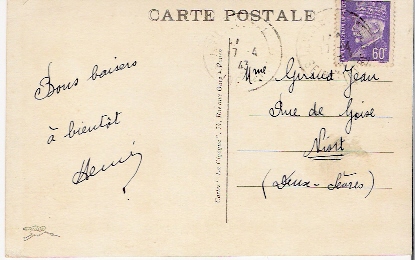 CARTE POSTALE
7-4
43
60c
Bons baisers
à bientôt
Henri
Mme Giraud Jean
Rue de Goise
Niort
(Deux-Sèvres)